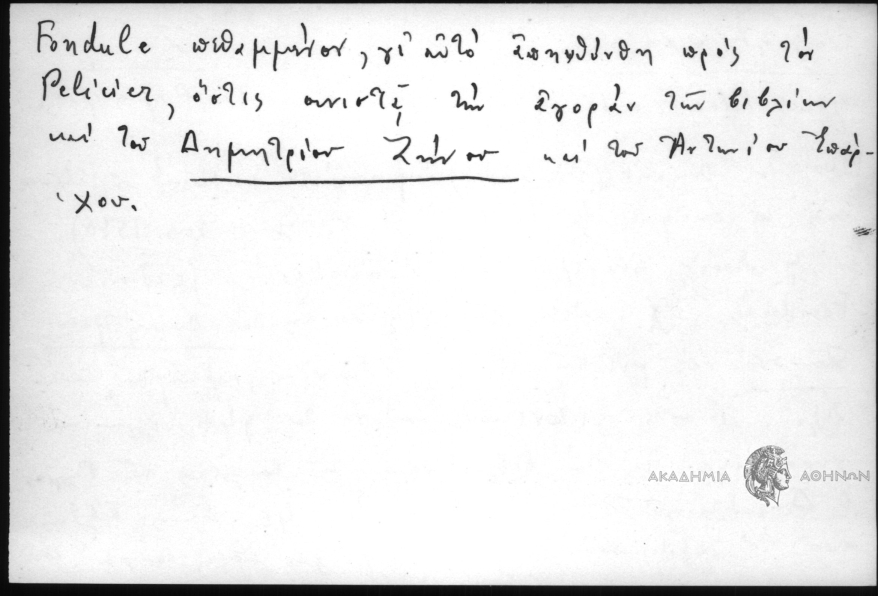 Fondule πεθαμμένον, γι' αὐτό ἀπηυθύνθη πρός τόν
Pelicier, ὅστις συνιστᾷ τήν ἀγοράν τῶν βιβλίων
καί τοῦ Δημητρίου Ζήνου καί τοῦ Ἀντωνίου Ἐπάρ-
χου.
ΑΚΑΔΗΜΙΑ ΑΘΗΝΩΝ